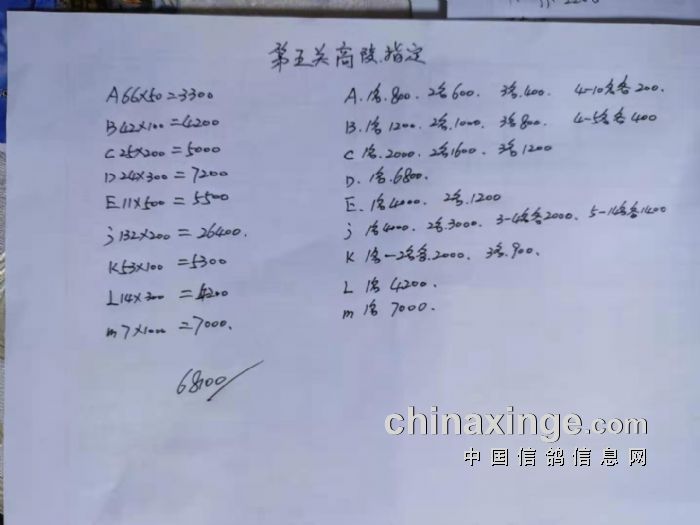 第五关高陵指定
A 66×50=3300
B 42×100=4200
C 25×200=5000
D 24×300=7200
E 11×500=5500
j 132×200=26400.
K 53×100=5300
L 14×300=4200
m 7×1000=7000.
68100
A. 1名.800. 2名600. 3名.400. 4-10名各200.
B. 1名1200. 2名.1000. 3名800. 4-5名各400
C 1名.2000. 2名1600. 3名1200
D. 1名.6800.
E. 1名4000. 2名.1200
j 1名4000. 2名.3000. 3-4名各2000. 5-14名各1400
K 1名-2名各.2000. 3名.900.
L 1名4200.
m 1名7000.
chinaxinge.com
中国信鸽信息网